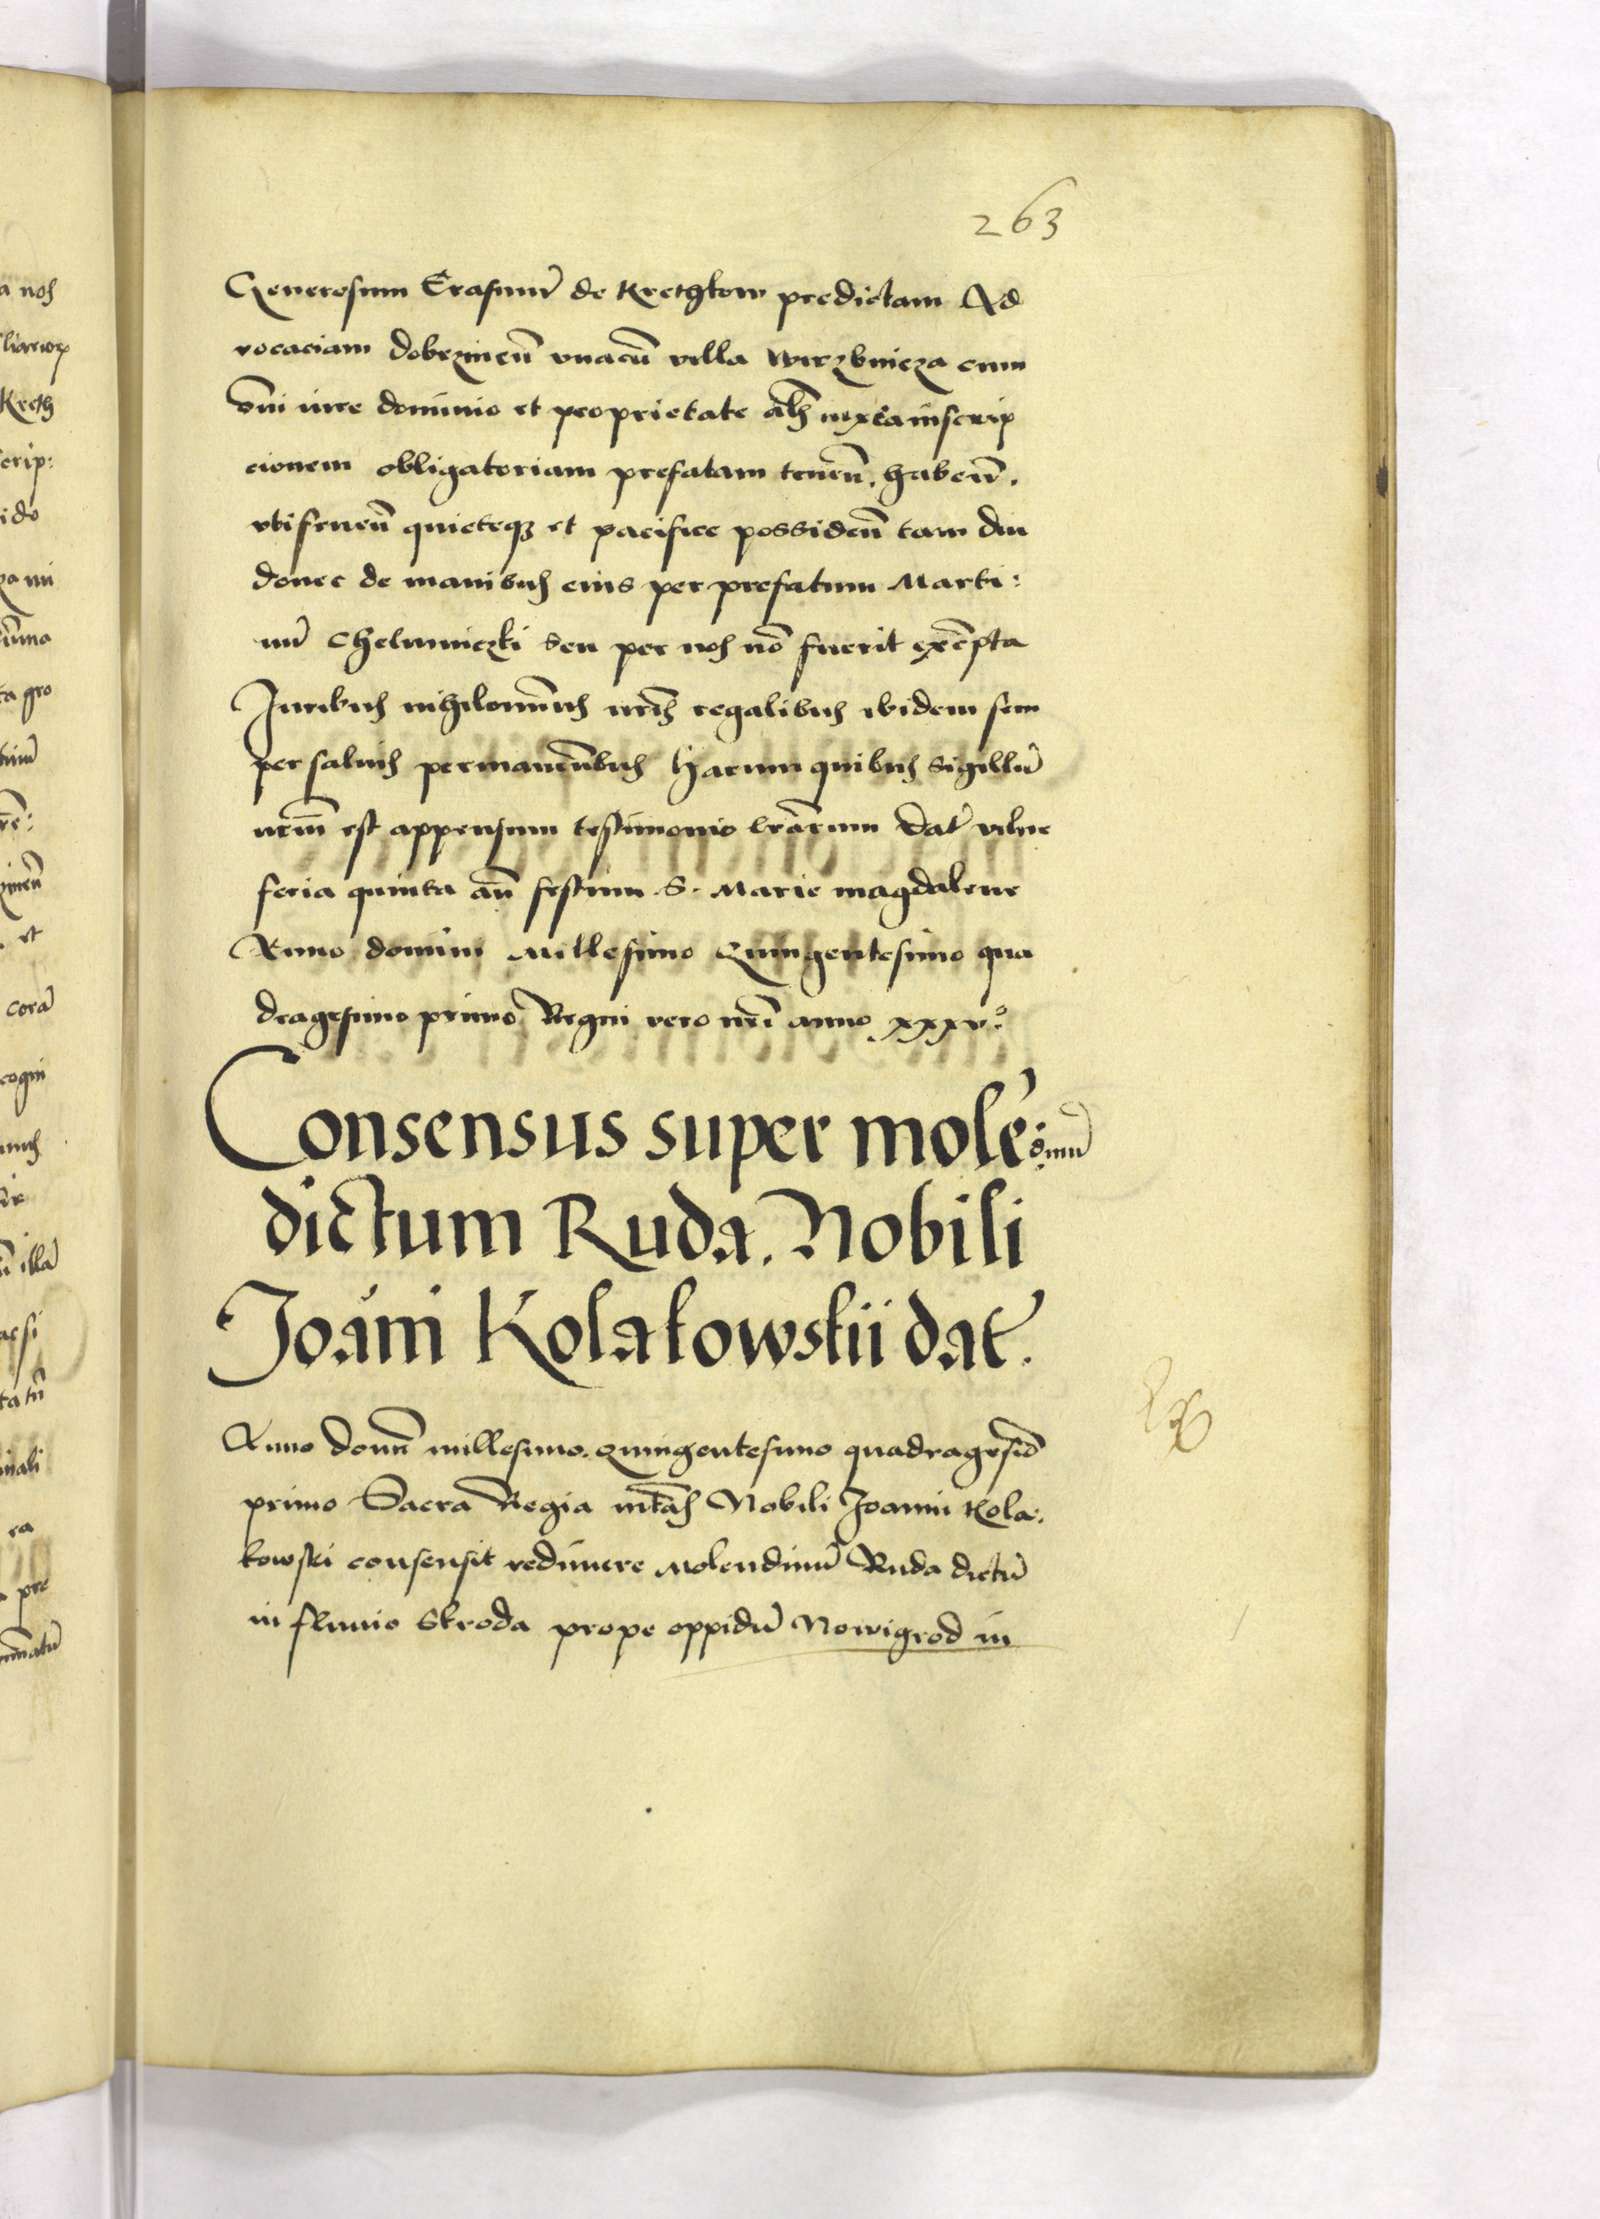 263
Generosum Erasmū de Krethkow predictam Ad
vocaciam dobrzineñ vnacū villa wirzbnicza cum
om̄i iure dominio et proprietate ac iuxta inscrip
cionem obligatoriam prefatam teneñ. habeñ.
vtifrueñ quieteqʒ et pacifice possideñ tam diu
donec de manibus eius per prefatum Marti:
nū Chelmiczki seu per nos nō fuerit exēpta
Juribus nihilominus nr̄is regalibus ibidem sem
per saluis permaneñbus Harum quibus sigillū
nrm̄ est appensum testimonio lrārum Dat̄ vilne
feria quinta añ festum S. Marie magdalene
Anno domini Millesimo Quingentesimo qua
dragesimo primo Regni vero nrī anno xxxv.º
Consensus super molē:dinū
dictum Ruda. Nobili
Joāni Kolakowskii dat̄.
Anno domī millesimo. Quingentesimo quadragesiō
primo Sacra Regia mtās Nobili Joanni Kola:
kowski consensit redimere Molendinū Ruda dictū
in fluuio Skroda prope oppidū Nowigrod in